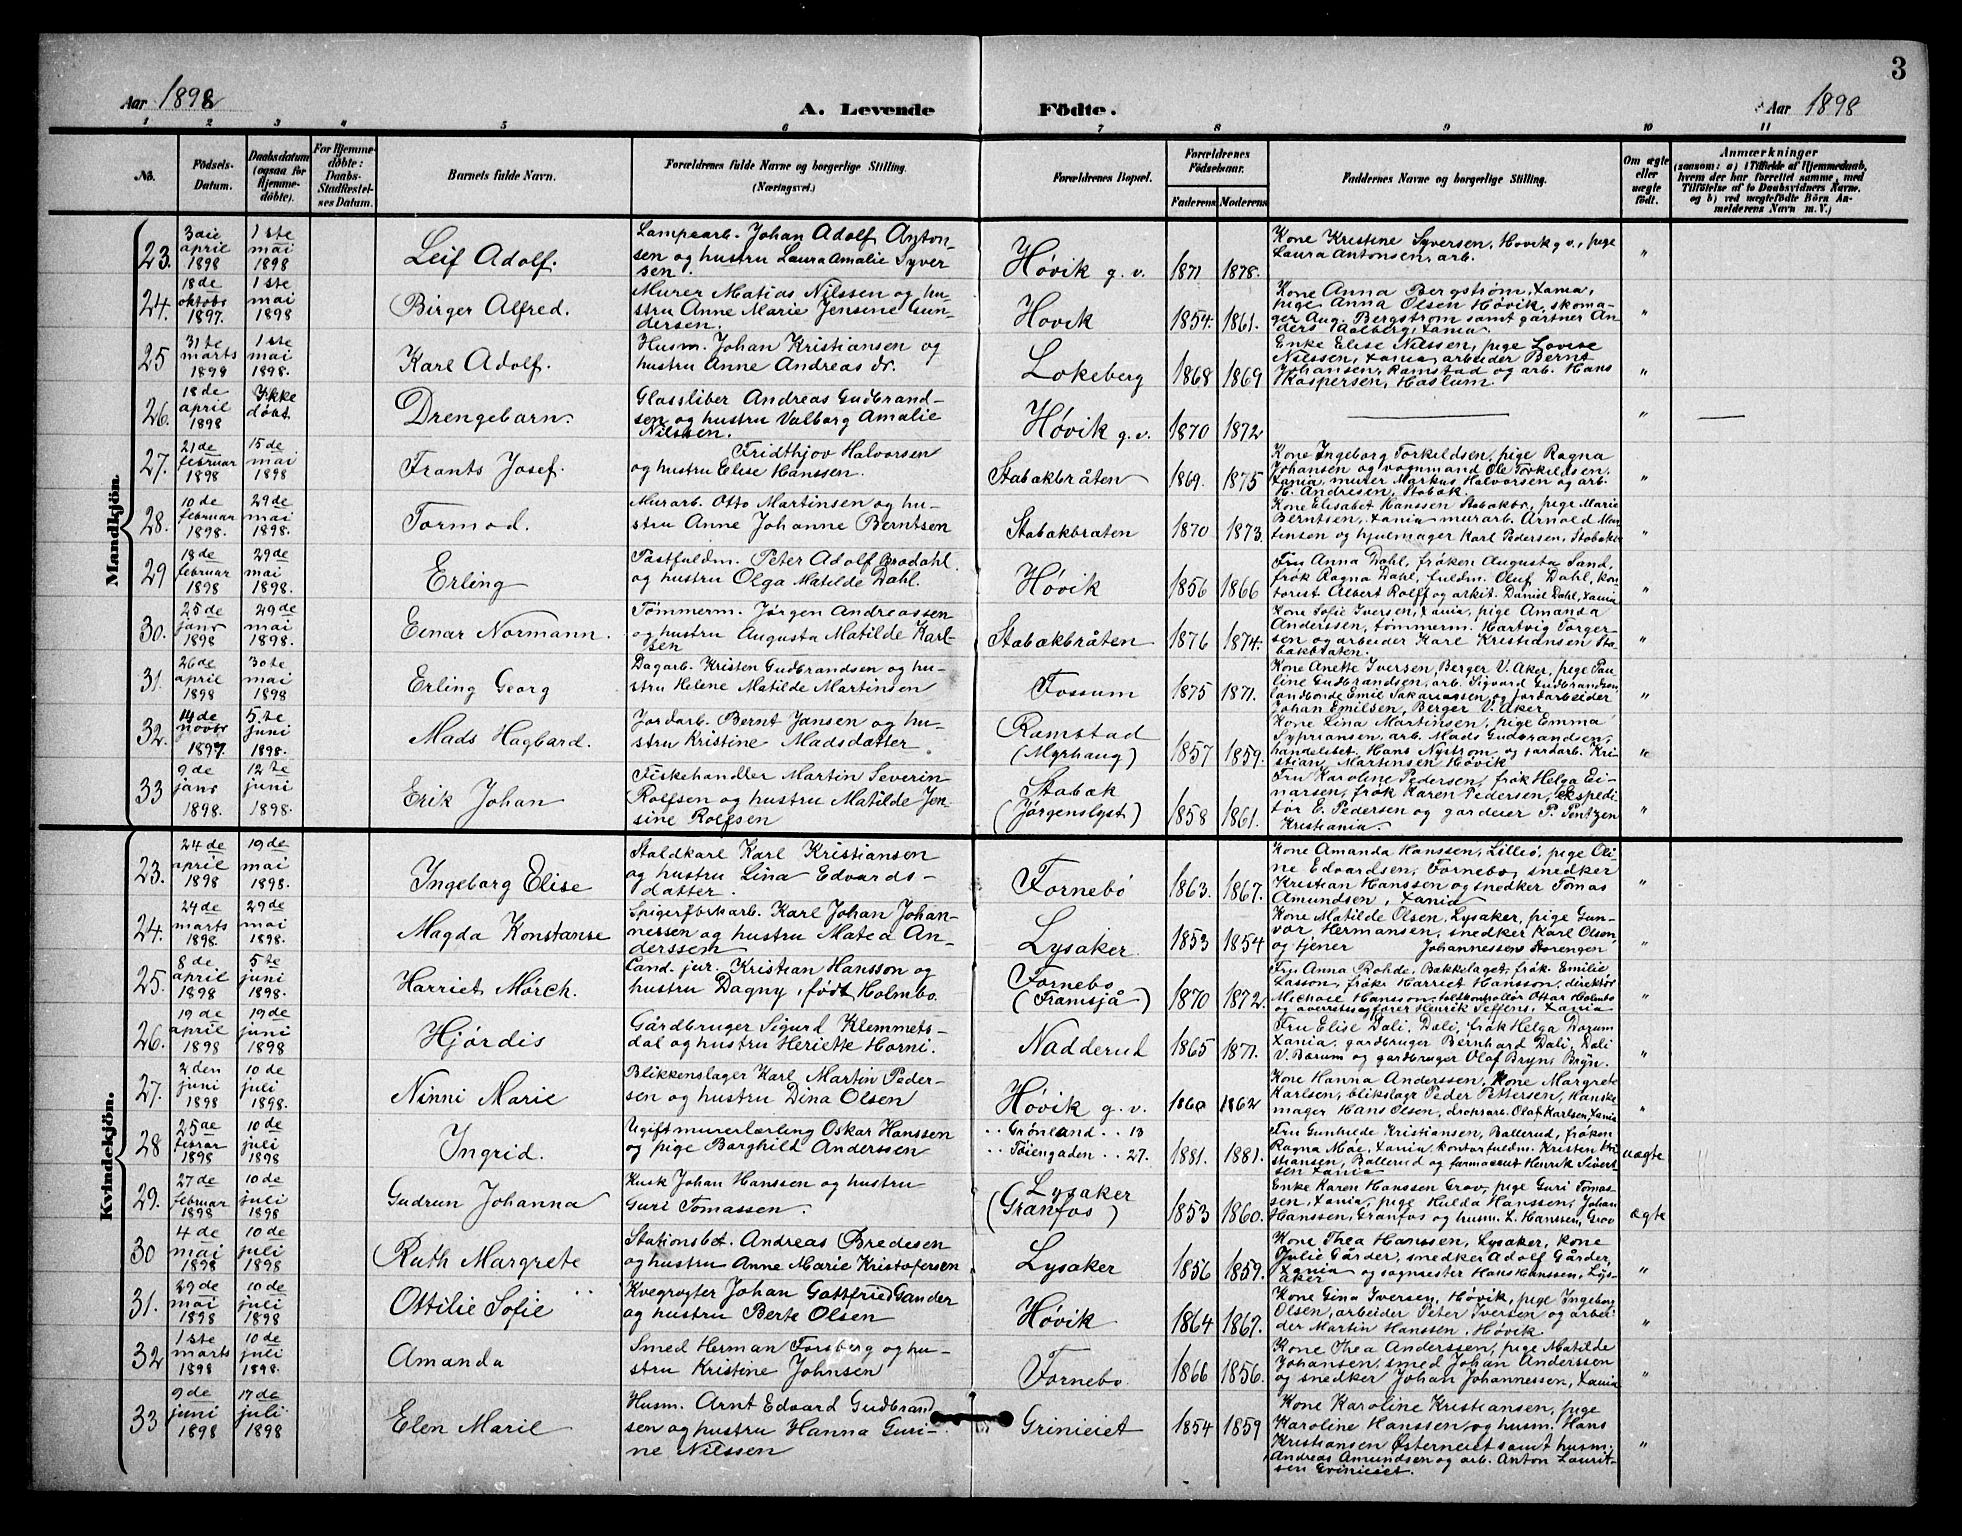 3
Aar 1898
A. Levende
Födte.
Aar 1898
1 2 3 4 5 6 7 8 9 10 11
No.
Födsels-
Datum.
Daabsdatum
(ogsaa for
Hjemme-
döbte).
For Hjemme-
döbte:
Daabs-
Stadfæstel-
ses Datum.
Barnets fulde Navn.
Forældrenes fulde Navne og borgerlige Stilling.
(Næringsvei.)
Forældrenes Bopæl.
Forældrenes
Födselsaar.
Faderens Moderens
Faddernes Navne og borgerlige Stilling.
Om ægte
eller
uægte
födt.
Anmærkninger
(saasom: a) i Tilfælde af Hjemmedaab,
hvem der har forrettet samme, med
Tilföielse af to Daabsvidners Navne.
og b) ved uægtefödte Börn An-
melderens Navn m. V.)
Mandkjön.
23. 3die april 1898 1ste mai 1898
Leif Adolf.
Lampearb. Johan Adolf Anton-
sen og hustru Laura Amalie Syver
sen.
Høvik g. v. 1871 1878.
Kone Kristine Syversen, Høvik g v., pige
Laura Antonsen, arb. "
24. 18de oktobr 1897. 1ste mai 1898
Birger Alfred.
Murer Matias Nilssen og hu-
stru Anne Marie Jensine Gun-
dersen.
Høvik 1854. 1861.
Kone Anna Bergstrøm, Xania,
pige Anna Olsen Høvik, skoma-
ger Aug. Bergstrøm samt gartner An
ders Aalberg, Xania. "
25 31te marts 1898 1ste mai 1898.
Karl Adolf.
Husm. Johan Kristiansen og
hustru Anne Andreas dr.
Løkeberg 1868 1869
Enke Elise Nilssen, pige Lovise
Nilssen, Xania, arbeider Bernt
Johansen, Ramstad og arb. Hans
Kaspersen, Haslum. "
26. 18de april 1898 Ikke døbt.
Drengebarn.
Glassliber Andreas Gudbrand-
sen og hustru Valborg Amalie
Nilssen.
Høvik g. v. 1870 1872 "
27. 21de februar 1898 15de mai 1898
Frants Josef.
Fridthjov Halvorsen
og hustru Elise Hanssen.
Stabakbråten 1869. 1875
Kone Ingeborg Torkildsen, pige Ragna
Johansen og vognmand Ole Torkildsen,
Xania, murer Markus Halvorsen og arb.
H. Andresen, Stabak. "
28. 10de februar 1898. 29de mai 1898.
Tormod.
Murarb. Otto Martinsen og hu-
stru Anne Johanne Berntsen
Stabakbråten 1870 1873.
Kone Elisabet Hanssen Stabakbr, pige Marie
Berntsen, Xania murarb. Arnold Mar
tinsen og hjulmager Karl Pedersen, Stabakbr "
29 18de februar 1898 29de mai 1898.
Erling
Postfuldm. Peter Adolf Brodahl.
og hustru Olga Matilde Dahl.
Høvik 1856 1866
Fru Anna Dahl, frøken Augusta Sand,
frøk Ragna Dahl, fuldm. Oluf Dahl, kon
torist Albert Rolff og arkit. Daniel Dahl, Xania "
30. 25de janr 1898 29de mai 1898.
Einar Normann.
Tømmerm. Jørgen Andreassen
og hustru Augusta Matilde Karl-
sen
Stabakbråten 1876 1874.
Kone Sofie Iversen, Xania, pige Amanda
Anderssen, tømmerm. Hartvig Torger-
sen og arbeider Karl Kristiansen Sta
bakbråten. "
31. 26de april 1898 30te mai 1898
Erling Georg
Dagarb. Kristen Gudbrandsen og hu-
stru Helene Matilde Martinsen
Fossum 1875 1871.
Kone Anette Iversen, Berger V. Aker, pige Pau
line Gudbrandsen, arb. Sigvard Gudbrandsen,
landbonde Emil Sakariassen og jordarbeider
Johan Emilsen, Berger V. Aker. "
32. 14de novbr 1897 5te juni 1898.
Mads Hagbard.
Jordarb. Bernt Jansen og hu-
stru Kristine Madsdatter.
Ramstad
(Myrhaug) 1857 1859.
Kone Lina Martinsen, pige Emma
Syprιansen, arb. Mads Gudbrandsen,
handelsbet. Hans Nystrøm og jordarb. Kri-
stian Martinsen Høvik "
33 9de janr 1898. 12te juni 1898.
Erik Johan
Fiskehandler Martin Severin
Rolfsen og hustru Matilde Jen-
sine Rolfsen
Stabak
(Jørgenslyst) 1858 1861.
Fru Karoline Pedersen, frøk Helga Ei-
narsen, frøk Karen Pedersen, ekspedi-
tør E. Pedersen og garderer P. Pentzen
Kristiania. "
Kvindekjön.
23. 24de april 1898 19de mai 1898.
Ingeborg Elise
Staldkarl Karl Kristiansen
og hustru Lina Edvards-
datter.
Fornebo 1863. 1867.
Kone Amanda Hanssen, Lilleø, pige Oli
ne Edvardsen, Fornebo, snedker
Kristian Hanssen og snedker Tomas
Amundsen, Xania "
24. 24de marts 1898. 29de mai 1898.
Magda Konstanse
Spigerfbrkarb. Karl Johan Johan-
nessen og hustru Matea An-
derssen
Lysaker 1853 1854
Kone Matilde Olsen, Lysaker, pige Gun-
vor Hermansen, snedker Karl Olson
og tjener Johannessen Storengen "
25. 8de april 1898 5te juni 1898.
Harriet Mørch.
Cand. jur. Kristian Hansson og
hustru Dagny, født Holmbo.
Fornebo
(Framsjå) 1870 1872.
Fru Anna Rohde, Bækkelaget, frøk. Emilie
Lasson, frøk Harriet Hansson, direktør
Michael Hansson, toldkontrollør Ottar Holmbo
og overretssagfører Henrik Seffens, Xania "
26. 19de april 1898 19de juni 1898
Hjørdis
Gårdbruger Sigurd Klemmets-
dal og hustru Heriette Horni.
Nadderud 1865 1871.
Fru Elise Dali, Dali, frøk Helga Dorum
Xania, gardbruger Bernhard Dali, Dali
V. Bærum og gardbruger Olaf Bryn, Bryn. "
27. 2den juni 1898 10de juli 1898.
Ninni Marie
Blikkenslager Karl Martin Peder-
sen og hustru Dina Olsen
Høvik g. v. 1860 1862
Kone Hanna Anderssen, Kone Margrete
Karlsen, blikslagr Peder Pettersen, Hanske
mager Hans Olsen, dropsarb. Olaf Karlsen, Xania "
28 25de febrar 1898 10de juli 1898
Ingrid.
Ugift murerlærling Oskar Hanssen
og pige Borghild Anderssen
" Grönland " 13
" Töiengaden " 27. 1881. 1881.
Fru Gunhilde Kristiansen, Ballerud, frøken
Ragna Moe, Xania, kontorfuldm. Kristen Kri
stiansen, Ballerud og farmaceut Henrik Sivert
sen Xania uægte
29. 27de februar 1898 10de juli 1898
Gudrun Johanna
Kusk Johan Hanssen og hustru
Guri Tomassen.
Lysaker
(Granfos) 1853 1860.
Enke Karen Hanssen Grav, pige Guri Tomas-
sen, Xania, pige Hulda Hanssen, Johan
Hanssen, Granfos og husm. L. Hanssen, Grav ægte
30 4de mai 1898 10de juli 1898
Ruth Margrete
Stationsbet. Andreas Bredesen
og hustru Anne Marie Kristofersen
Lysaker 1856 1859.
Kone Thea Hanssen, Lysaker, kone
Julie Gårder, snedker Adolf Gårder,
Xania og sagmester Hans Hanssen, Lys-
aker "
31. 29de mai 1898 10de juli 1898
Ottilie Sofie
Kvegrøgter Johan Gottfried Gander
og hustru Berte Olsen
Høvik 1864 1867.
Kone Gina Iversen, Høvik, pige Ingeborg
Olsen, arbeider Peter Iversen og arbei-
der Martin Hanssen, Høvik "
32 1ste marts 1898 10de juli 1898.
Amanda
Smed Herman Forsberg og hu-
stru Kristine Johnsen
Fornebo. 1866 1856.
Kone Thea Anderssen, pige Matilde
Johansen, smed Johan Anderssen
og snedker Johan Johannessen, Xania "
33 9de juni 1898 17de juli 1898
Elen Marie
Husm. Arnt Edvard Gudbrand
sen og hustru Hanna Guri-
ne Nilssen
Grinieiet 1854 1859
Kone Karoline Kristiansen, pige
Karoline Hanssen og husm. Hans
Kristiansen Østerneiet samt husm.
Andreas Amundsen og arb. Anton Laurit-
sen Grinieiet. "